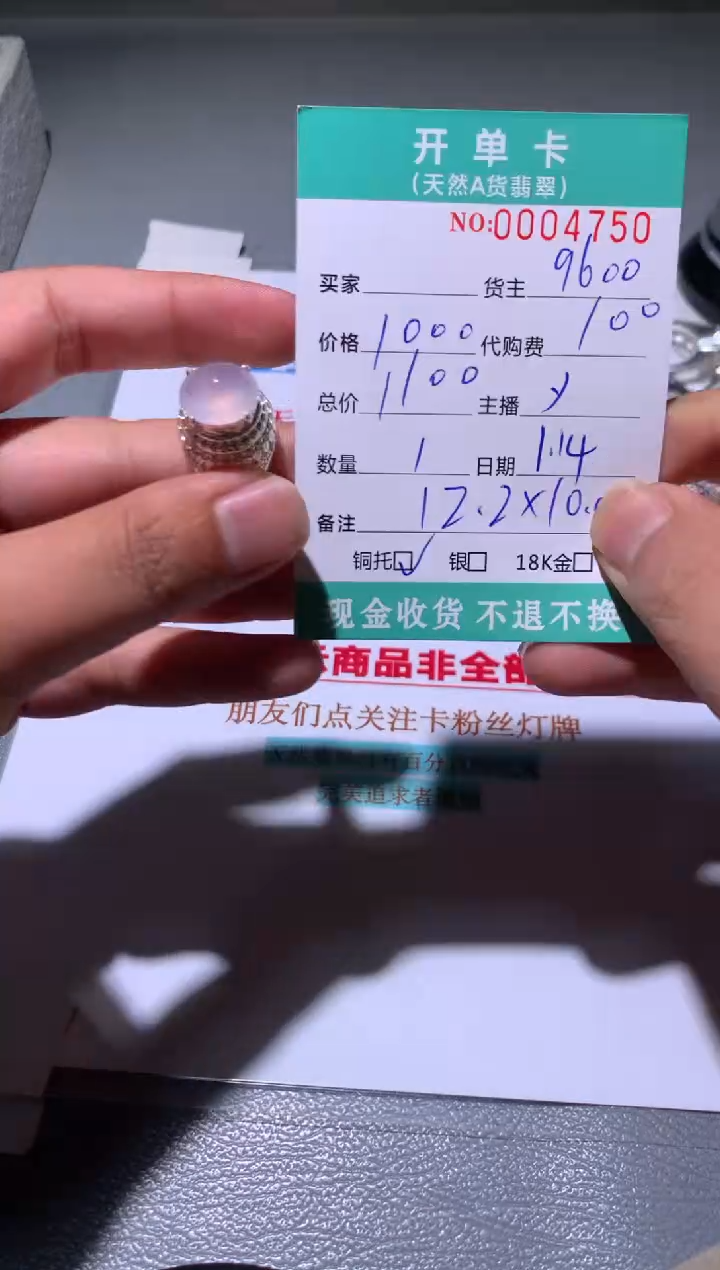 开单卡
(天然A货翡翠)
NO:0004750
买家 货主 9600
价格 1000 代购费 100
总价 1100 主播 y
数量 1 日期 1.14
备注 12.2×10.
铜托☑ 银□ 18K金□
现金收货 不退不换
商品非全部
朋友们点关注卡粉丝灯牌
百分
完美追求者